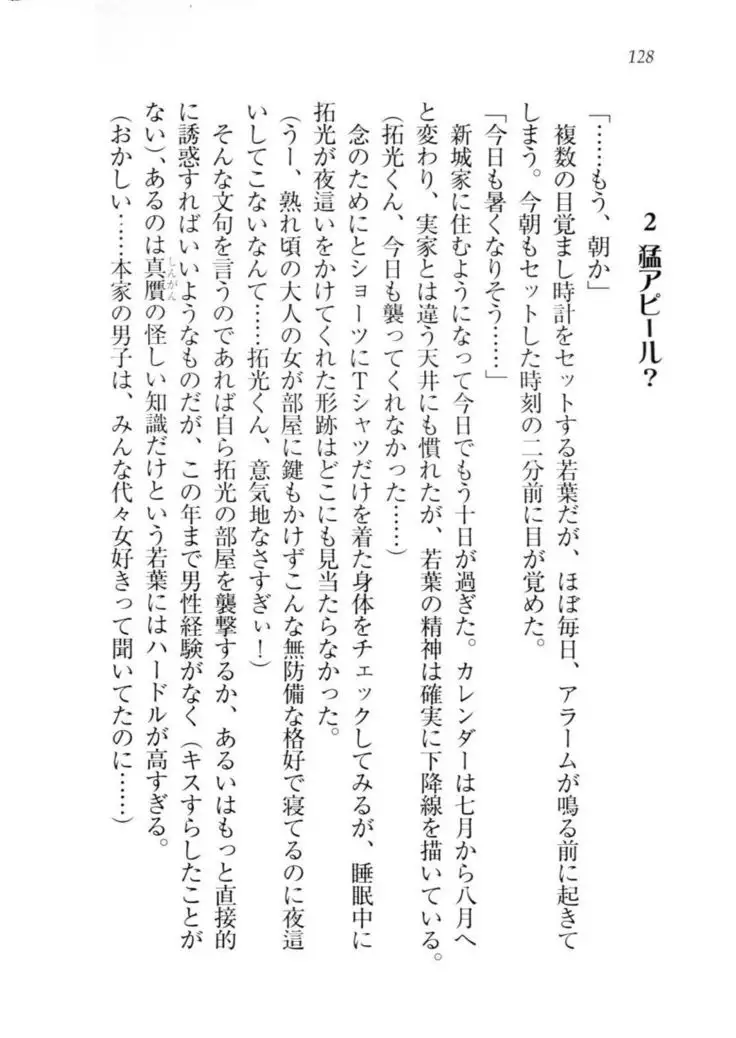 128
2 猛アピール?
「……もう、朝か」
複数の目覚まし時計をセットする若葉だが、ほぼ毎日、アラームが鳴る前に起きて
しまう。今朝もセットした時刻の二分前に目が覚めた。
「今日も暑くなりそう……」
新城家に住むようになって今日でもう十日が過ぎた。カレンダーは七月から八月へ
と変わり、実家とは違う天井にも慣れたが、若葉の精神は確実に下降線を描いている。
(拓光くん、今日も襲ってくれなかった……)
念のためにとショーツにTシャツだけを着た身体をチェックしてみるが、睡眠中に
拓光が夜這いをかけてくれた形跡はどこにも見当たらなかった。
(うー、熟れ頃の大人の女が部屋に鍵もかけずこんな無防備な格好で寝てるのに夜這
いしてこないなんて……拓光くん、意気地なさすぎぃ!)
そんな文句を言うのであれば自ら拓光の部屋を襲撃するか、あるいはもっと直接的
に誘惑すればいいようなものだが、この年まで男性経験がなく(キスすらしたことが
ない)、あるのは真贋しんがんの怪しい知識だけという若葉にはハードルが高すぎる。
(おかしい……本家の男子は、みんな代々女好きって聞いてたのに……)